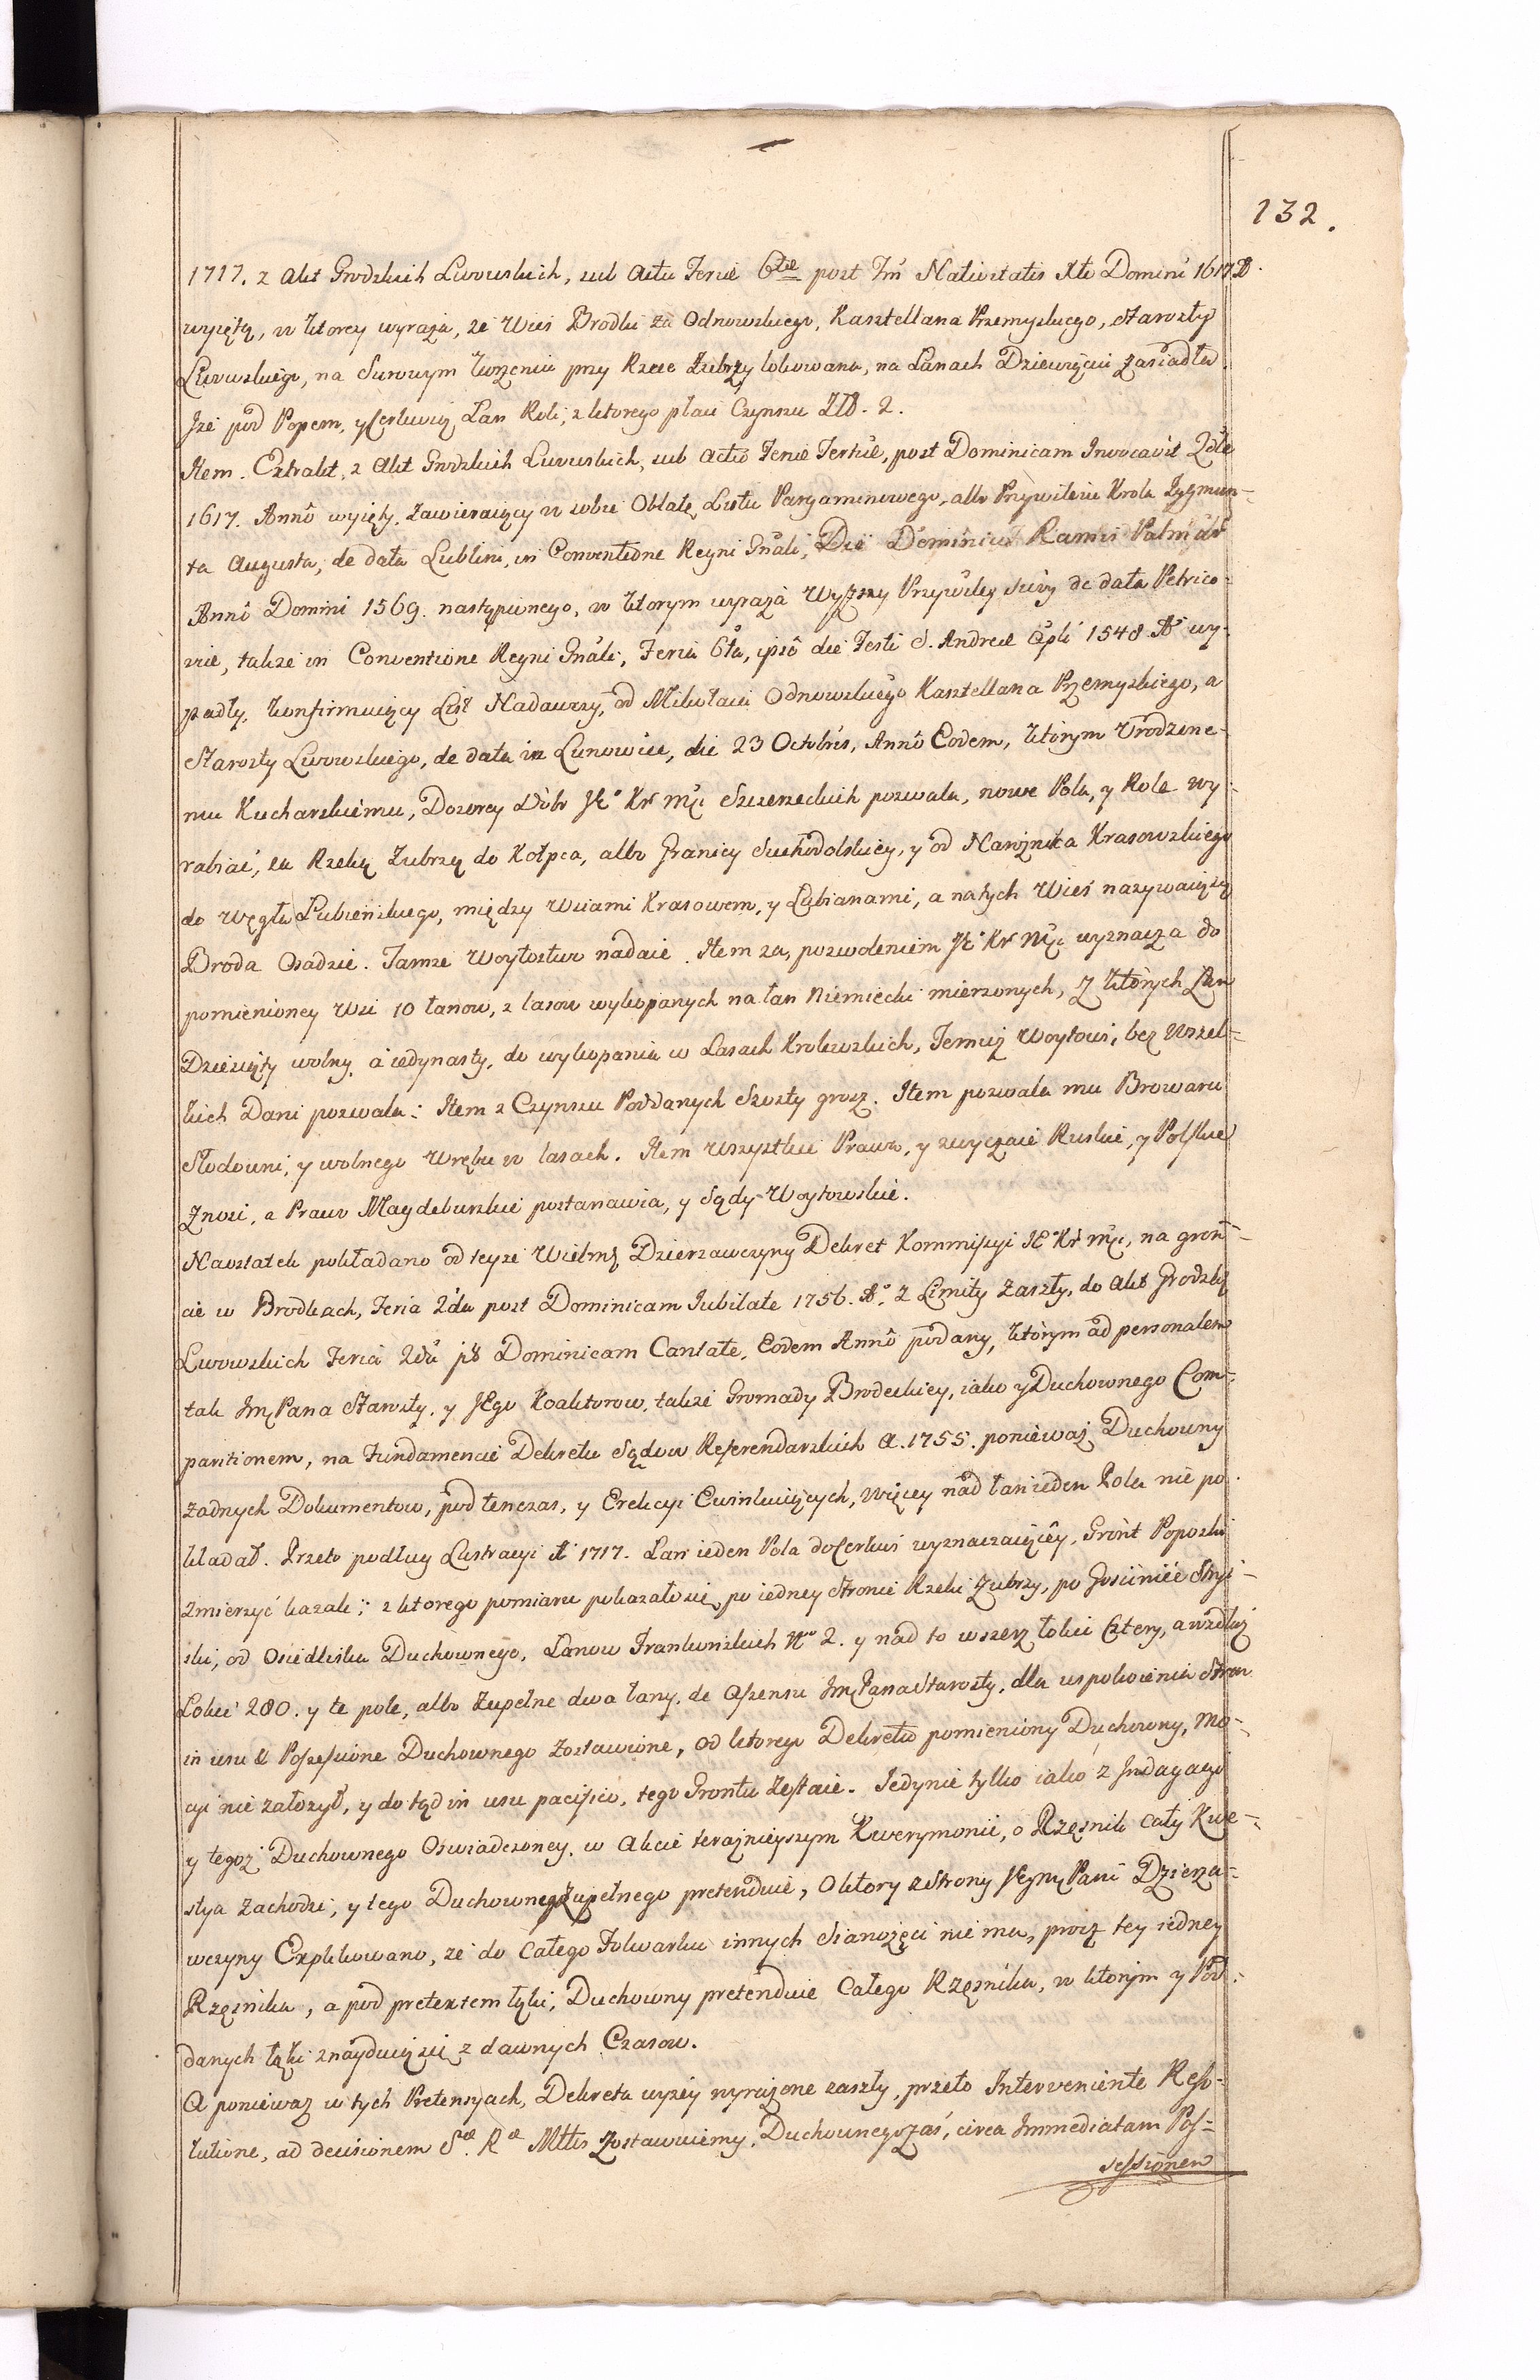 132.
1717. z Akt Grodzkich Lwowskich, sub Actu Feriæ 6tæ post Fm Nativitatis Xti Domini 1617 A
wyiętą, w ktorey wyraża, że Wieś Brodki za Odnowskiego, Kasztellana Przemyskiego, Starosty
Lwowskiego, na Surowym korzeniu przy Rzece Zubrzy lokowana, na Łanach Dziewięciu zasiadła.
Jże pod Popem, y Cerkwią Łan Roli, z ktorego płaci Czynszu Zł. 2.
Item. Extrakt, z Akt Grodzkich Lwowskich, sub Actu Feriæ Tertiæ, post Dominicam Invocavit Qdle
1617. Anno wyięty, zawieraiący w sobie Oblatę Listu Pargaminowego, albo Przywileiu Krola Zygmun-
ta Augusta, de data Lublini, in Conventione Regni Gnali, Die Dominica Ramis Palmar
Anno Domini 1569. nastąpionego, w ktorym wyraża Wyższy Przywiley swoy de data Petrico-
wie, także in Conventione Regni Gnali, Feria 6ta, ipso die Festi S. Andreæ Apli 1548 A wy-
padły, konfirmuiący List Nadawczy, od Mikołaia Odnowskiego Kasztellana Przemyskiego, a
Starosty Lwowskiego, de data in Lunowice, die 23 Octobris, Anno Eodem, ktorym Urodzone-
mu Kucharskiemu, Dozorcy Dobr JK Kr Mci Szczereckich pozwala, nowe Pola, y Role wy-
rabiać, za Rzeką Zubrzą do Kołpca, albo Granicy Suchodolskiey, y od Narożnika Krasowskiego
do Węgła Lubieńskiego, między Wsiami Krasowem, y Lubianami, a na tych Wieś nazywaiącą
Broda Osadzić. Tamże Woytostwo nadaie. Item za pozwoleniem JK Kr Mci wyznacza do
pomienioney Wsi 10 łanow, z lasow wykopanych na łan Niemiecki mierzonych, z ktorych Łan
Dziesięty wolny, a iedynasty, do wykopania w Lasach Krolewskich, Temuż Woytowi, bez wszel-
kich Dani pozwala: Item z Czynszu Poddanych Szosty grosz. Item pozwala mu Browaru
Słodowni, y wolnego Wrębu w lasach. Item wszystkie Prawa, y zwyczaie Ruskie, y Polskie
Znosi, a Prawo Magdeburskie postanawia, y Sądy Woytowskie.
Naostatek pokładano od teyże Wielmż Dzierżawczyny Dekret Kommissyi JK Kr Mci, na gron-
cie w Brodkach, Feria 2da post Dominicam Jubilate 1756. A. z Limity zaszły, do Akt Grodzk
Lwowskich Feria 2da pt Dominicam Cantate, Eodem Anno podany, ktorym ad personalem
tak Jm Pana Starosty, y JEgo Koaktorow, także Gromady Brodeckiey, iako y Duchownego Com-
paritionem, na Fundamencie Dekretu Sądow Referendarskich A. 1755. ponieważ Duchowny
żadnych Dokumentow, pod tenczas, y Erekcyi Ewinkuiących, więcey nad łan ieden Pola nie po-
kładał. Przeto podług Lustracyi A 1717. Łan ieden Pola do Cerkwi wyznaczaiącey, Gront Poposki
zmierzyć kazali; z ktorego pomiaru pokazało się, po iedney Stronie Rzeki Zubrzy, po Gościniec Stryi-
ski, od Osiedliska Duchownego, Łanow Frankońskich No 2. y nad to wszerz łokci Cztery, a wzdłuż
Łokci 280. y te pole, albo zupełne dwa łany, de Assensu Jm Pana Starosty, dla uspokoienia Stron
in usu & Possessione Duchownego zostawione, od ktorego Dekretu pomieniony Duchowny, Mo-
cyi nie założył, y do tąd in usu pacifico, tego Grontu zostaie. Jedynie tylko iako z Jndagacyi
y tegoż Duchownego Oświadczoney, w Akcie teraznieyszym Kwerymonii, o Rzęsnik cały Kwe-
stya zachodzi, y tego Duchowny zupełnego pretenduie, O ktory z Strony JEymy Pani Dzierża-
wczyny Explikowano, że do całego Folwarku innych Sianożęci nie ma, procz tey iedney
Rzęsnika, a pod pretextem łąki, Duchowny pretenduie Całego Rzęsnika, w ktorym y Pod-
danych łąki znayduią się z dawnych Czasow.
A ponieważ w tych Pretensyach, Dekreta wyżey wyrażone zaszły, przeto Interveniente Reso-
lutione, ad decisionem Sæ Ræ Mttis zostawuiemy, Duchownego zaś, circa Jmmediatam Pos-
sessionem